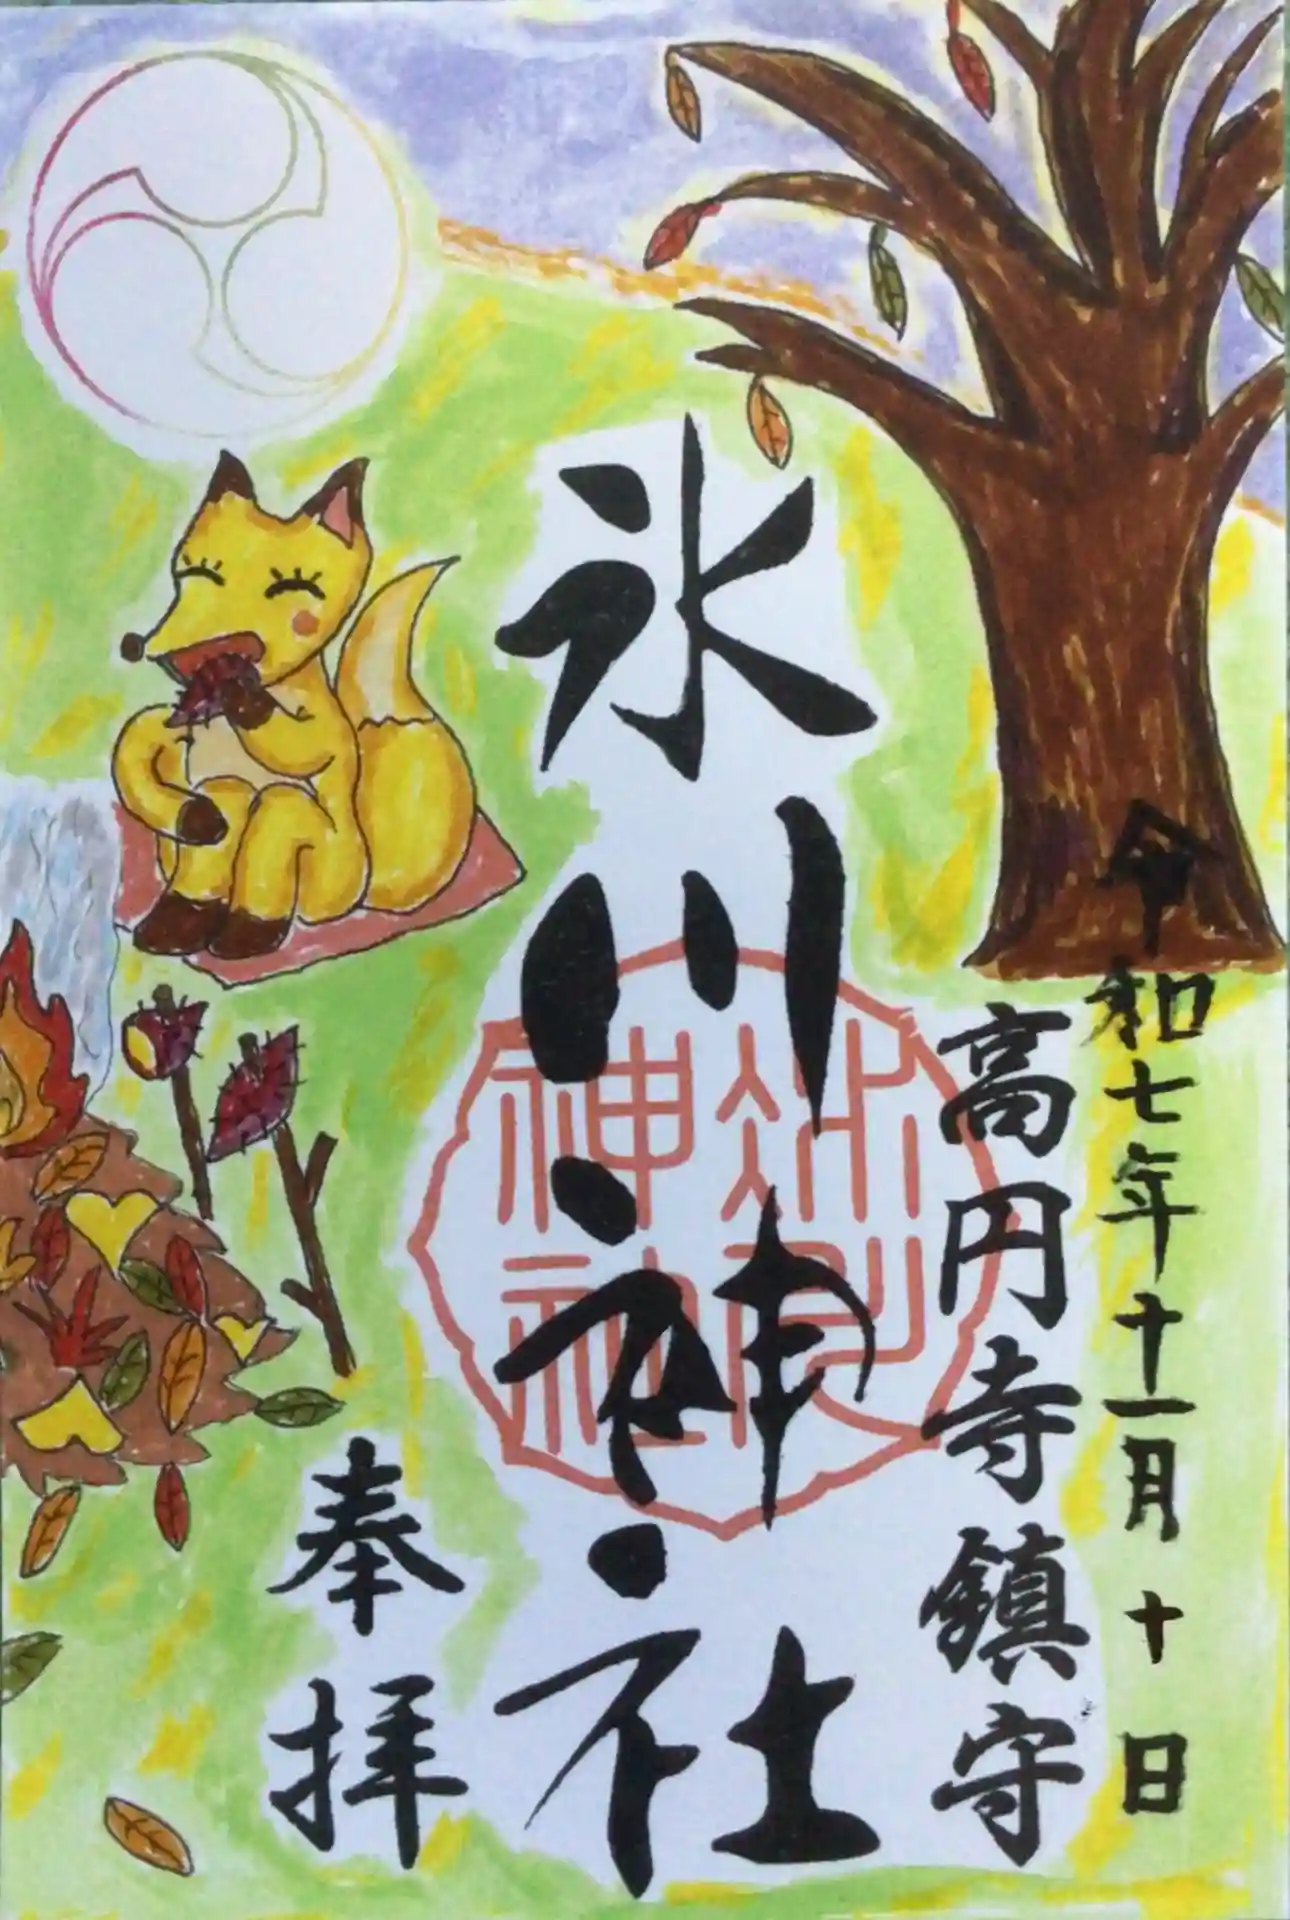 令和七年十一月十日
高円寺鎮守
氷川神社
奉拝
氷川
神社